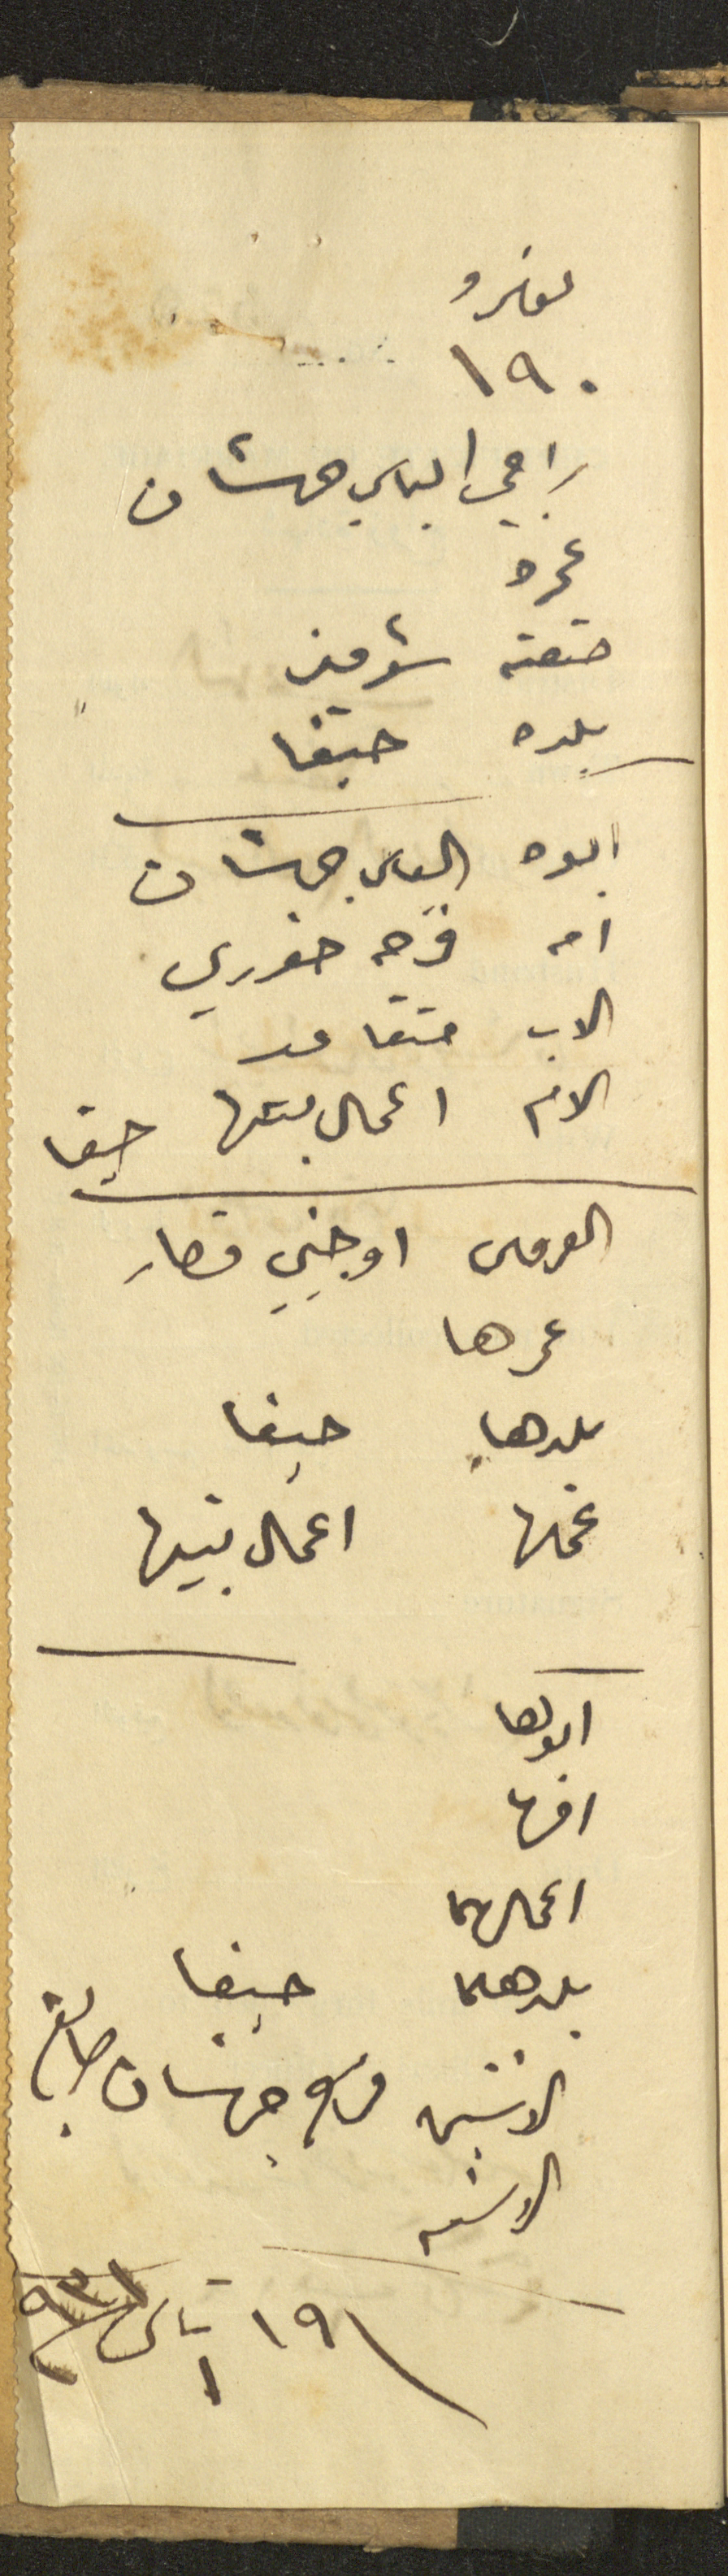 نمرو
١٩٠
راجي الياس جهشان
عمره
صنعته شوفير
بلده حيفا
ابوه الياس جهشان
امه فرحه خوري
الاب متقاعد
الام اعمال بيتها حيفا
العروس اوجيني قصار
عمرها
بلدها حيفا
عملها اعمال بيتها
ابوها
امها
اعمالهما
بلدهما حيفا
الاشبين جهشان
الاشبينه
١٩